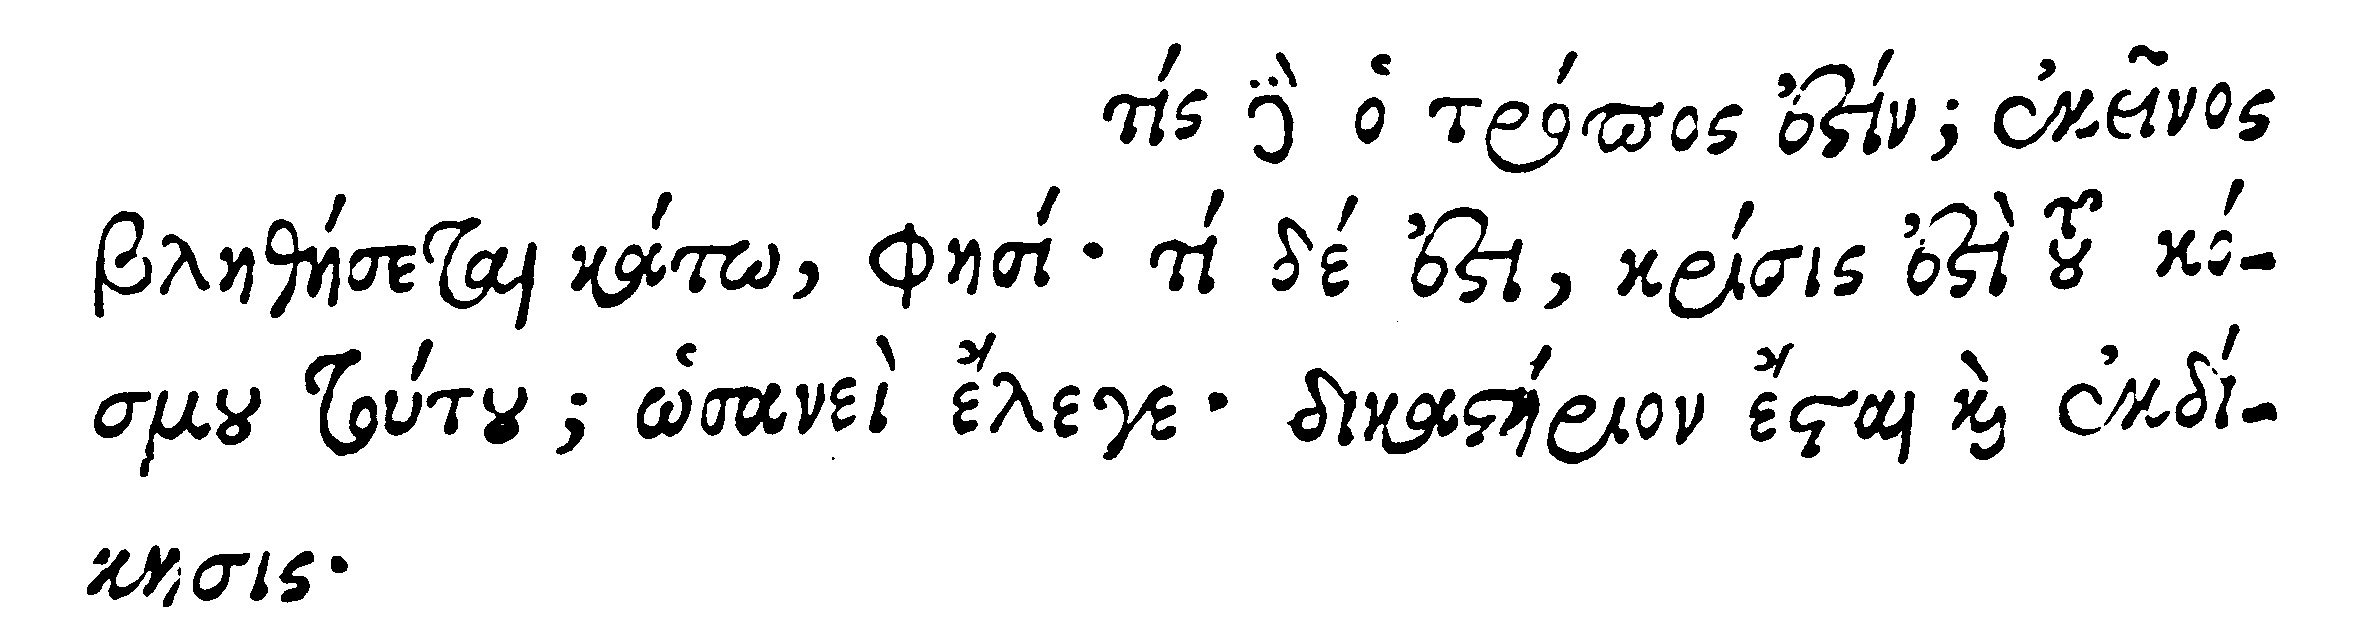 τίς δὲ ὁ τρόπος ἐστίν; ἐκεῖνος
βληθήσεται κάτω, φησί· τί δέ ἐστι, κρίσις ἐστὶ τοῦ κό-
σμου τούτου; ὡσανεὶ ἔλεγε· δικαστήριον ἔσται καὶ ἐκδί-
κησις·